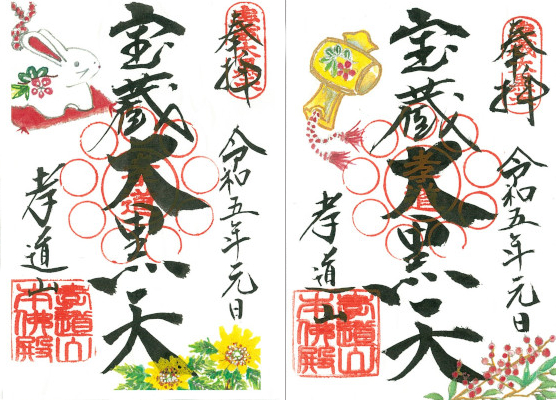 奉拝
令和五年元日
宝蔵大黒天
孝道山
孝道山
本佛殿
奉拝
令和五年元日
宝蔵大黒天
孝道山
孝道山
本佛殿